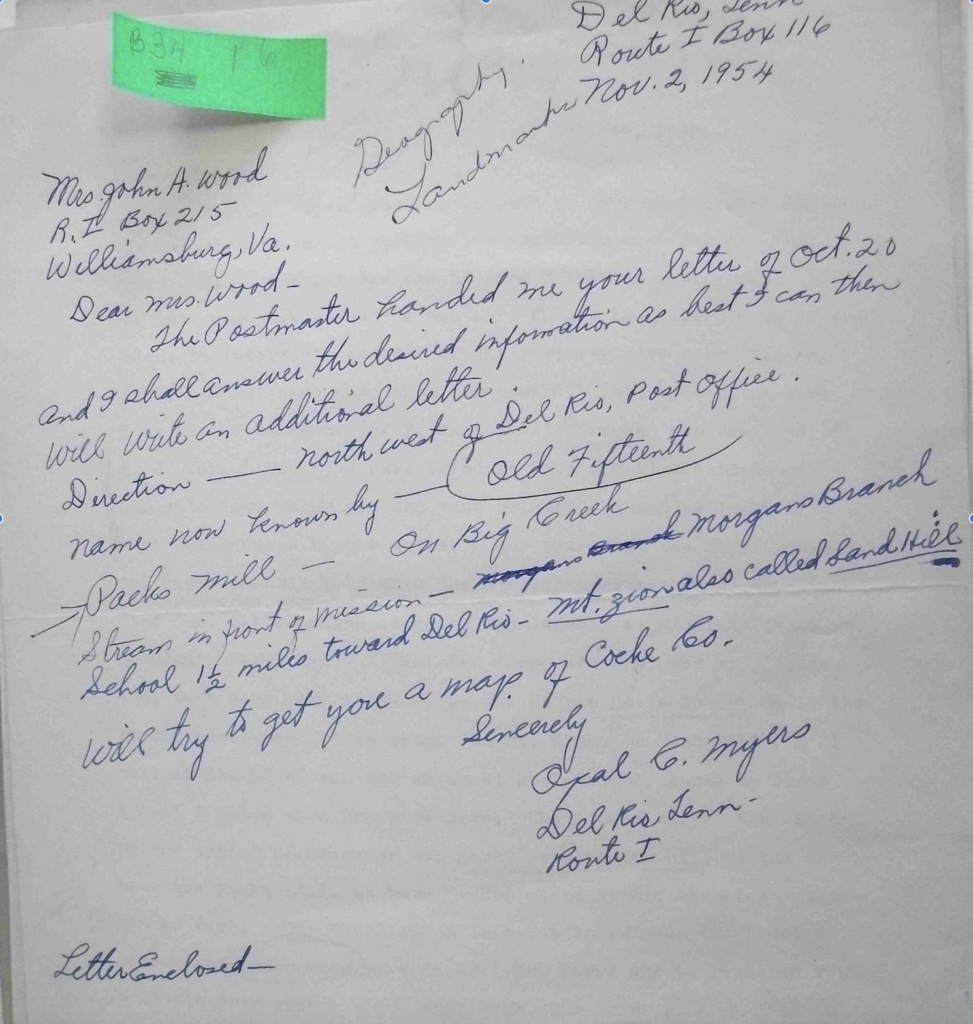 B34 16
Del Rio, Tenn
Route I Box 116
Nov. 2, 1954
Geography.
Landmarks
Mrs. John A. Wood
R. I Box 215
Williamsburg, Va.
Dear Mrs. Wood-
The Postmaster handed me your letter of Oct. 20
and I shall answer the desired information as best I can then
will write an additional letter.
Direction — north west of Del Rio, Post Office.
name now known by — Old Fifteenth
→ Packs Mill — On Big Creek
Stream in front of mission — Morgans Branch Morgans Branch
School 1½ miles toward Del Rio - Mt. Zion also called Sand Hill
Will try to get you a map of Cocke Co.
Sincerely
Opal C. Myers
Del Rio Tenn-
Route I
Letter Enclosed—